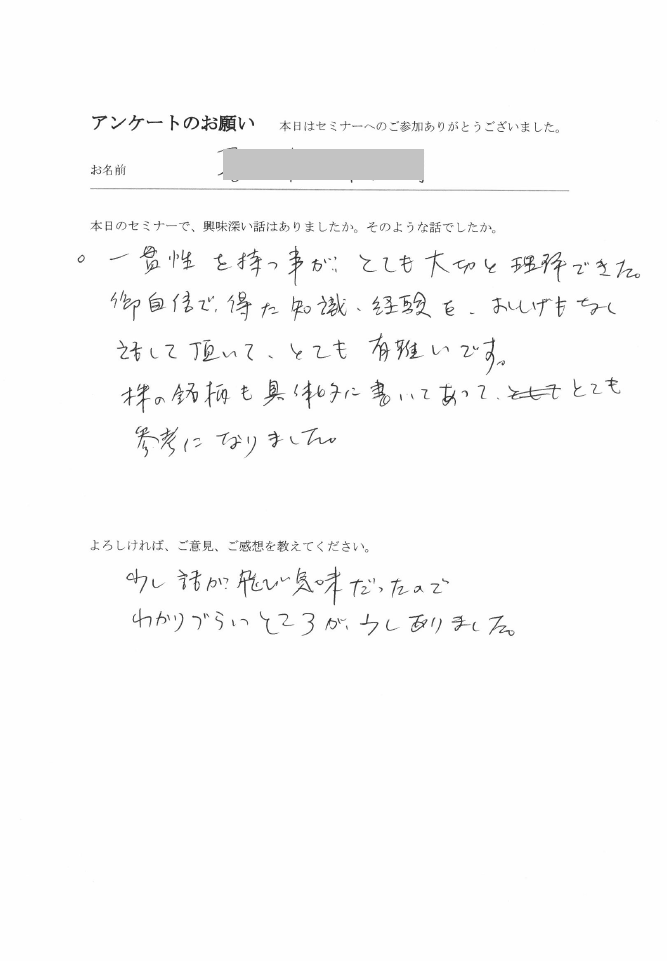 アンケートのお願い 本日はセミナーへのご参加ありがとうございました。
お名前
本日のセミナーで、興味深い話はありましたか。そのような話でしたか。
。一貫性を持つ事が、とても大切と理解できた。
御自信で、得た知識、経験を、おしげもなし
話して頂いて、とても有難いです。
株の銘柄も具体的に書いてあって、とても
参考になりました。
よろしければ、ご意見、ご感想を教えてください。
少し話が飛び気味だったので
わかりづらいところが、少しありました。